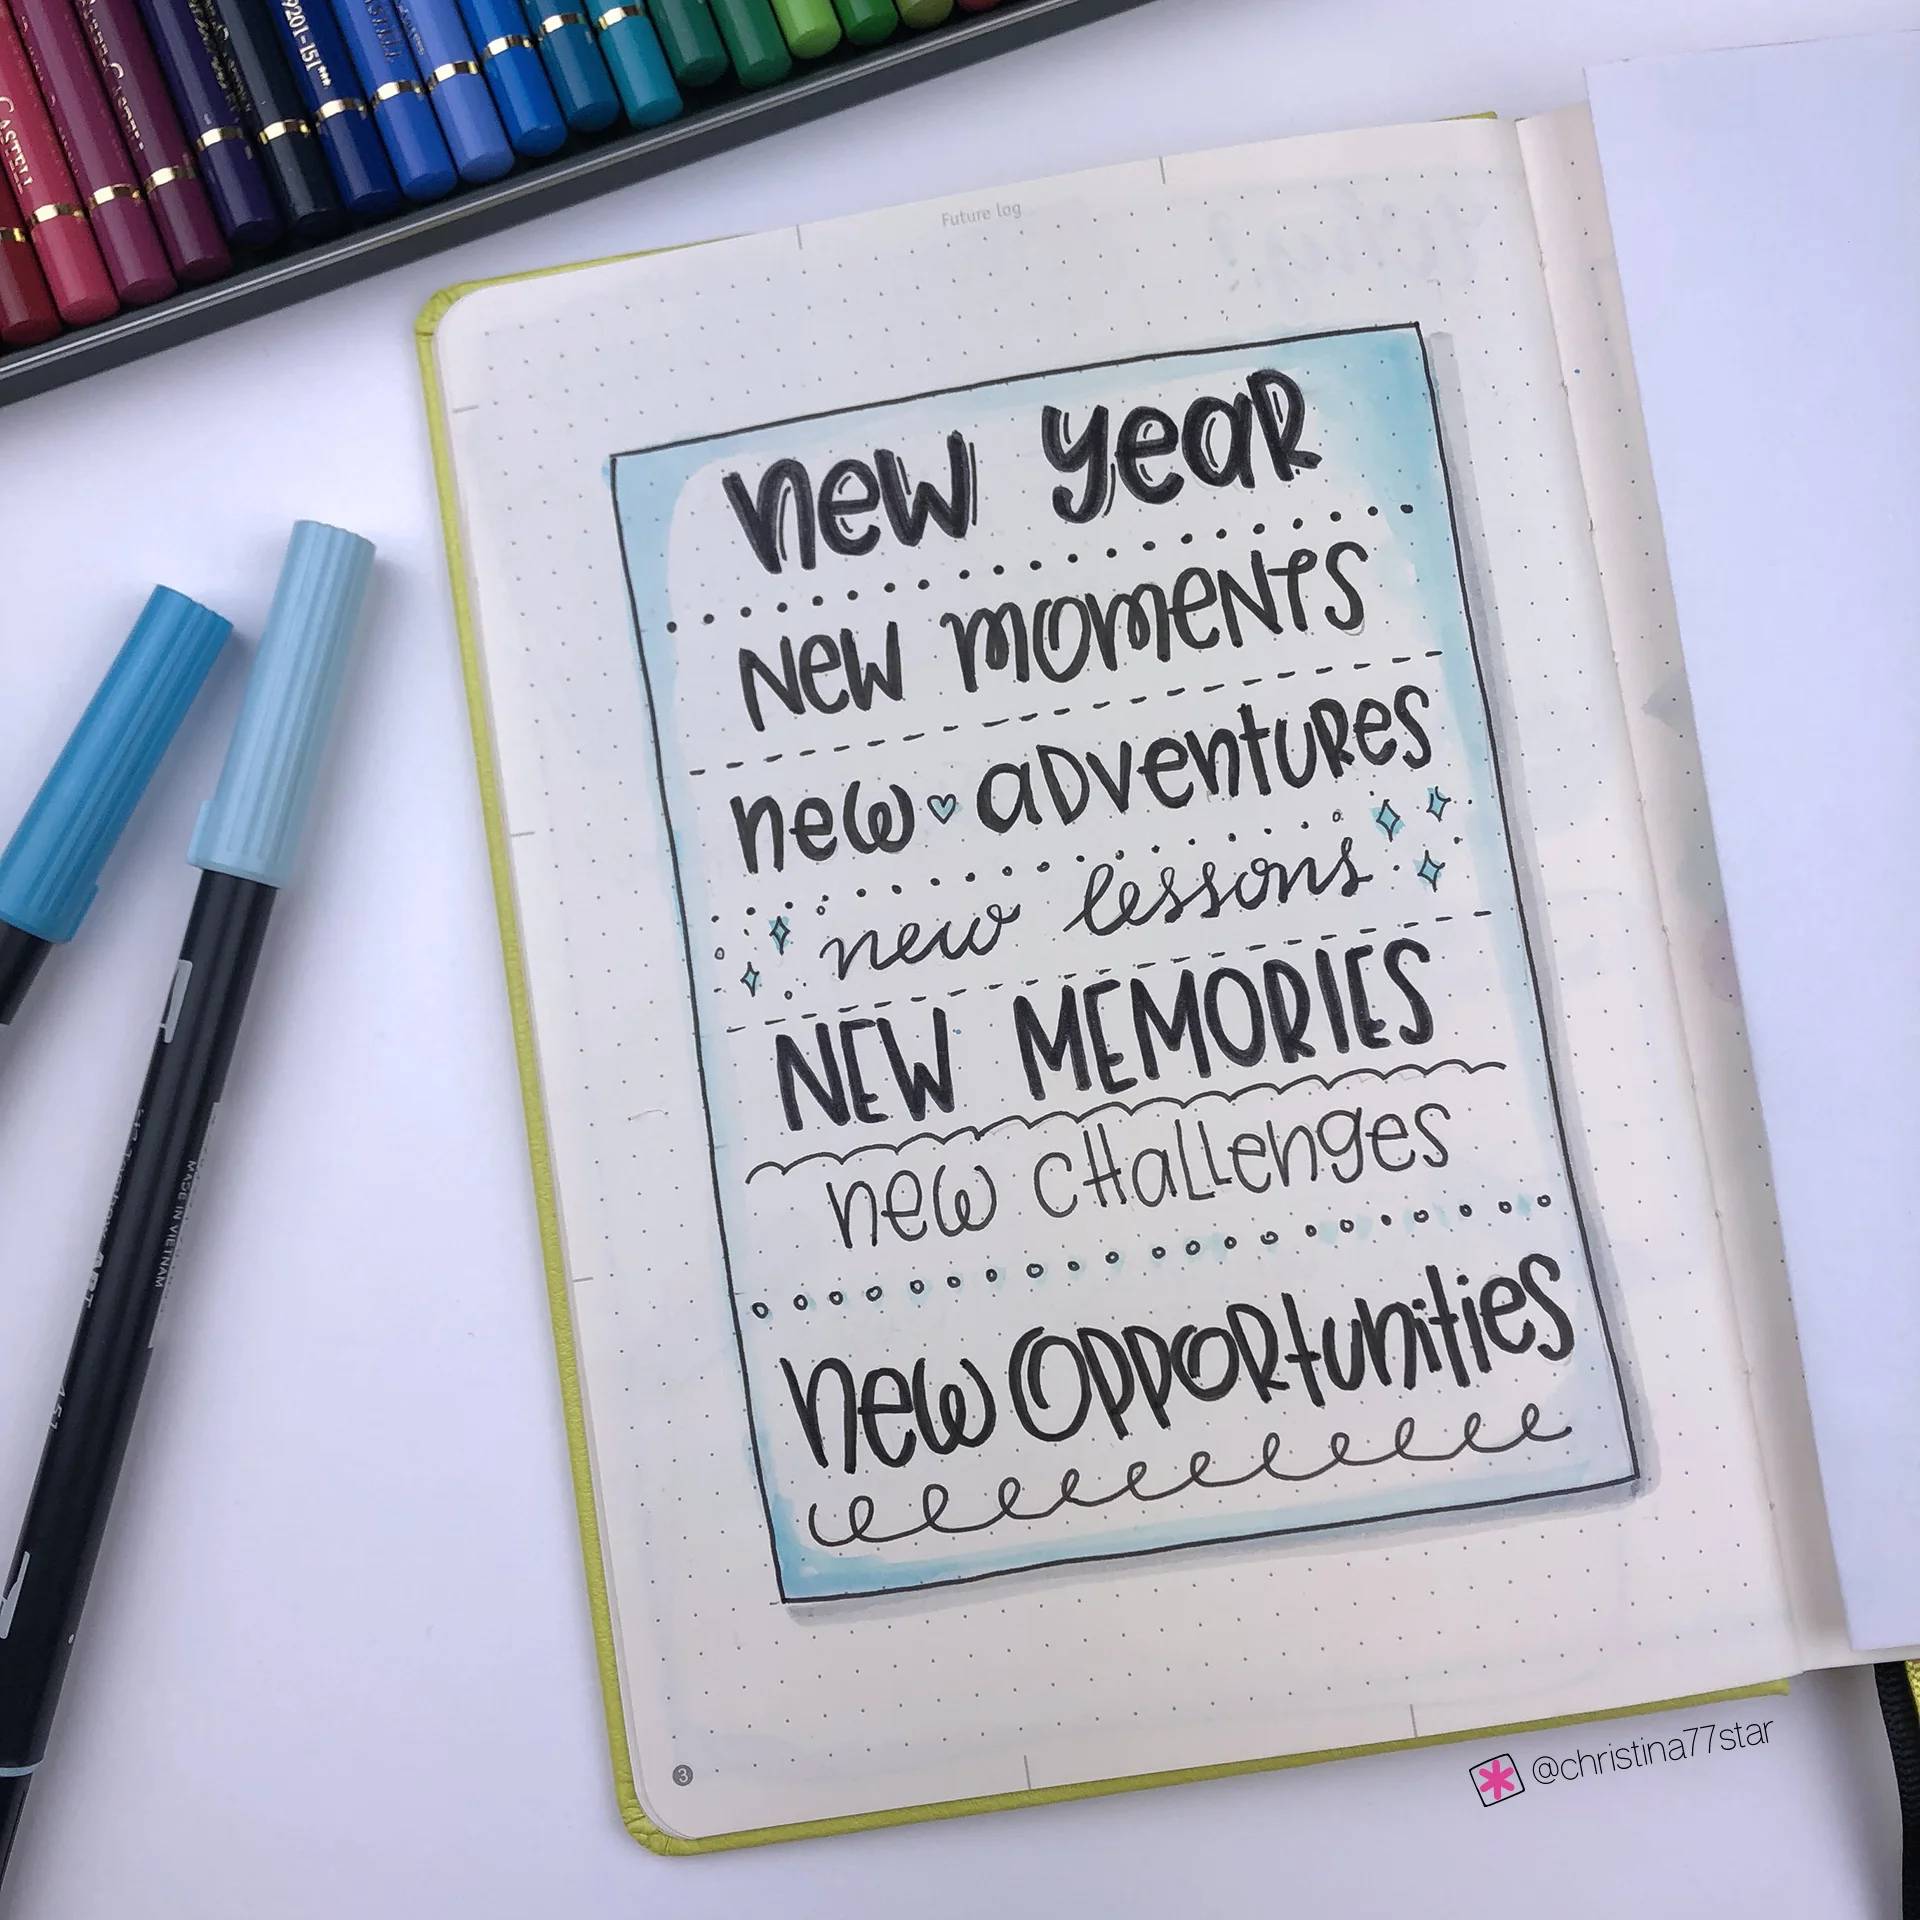 CASTELL
9201-151***
Future log
new year
New moments
new adventures
new lessons
NEW MEMORIES
new challenges
new opportunities
MADE IN VIETNAM
3
@christina77star